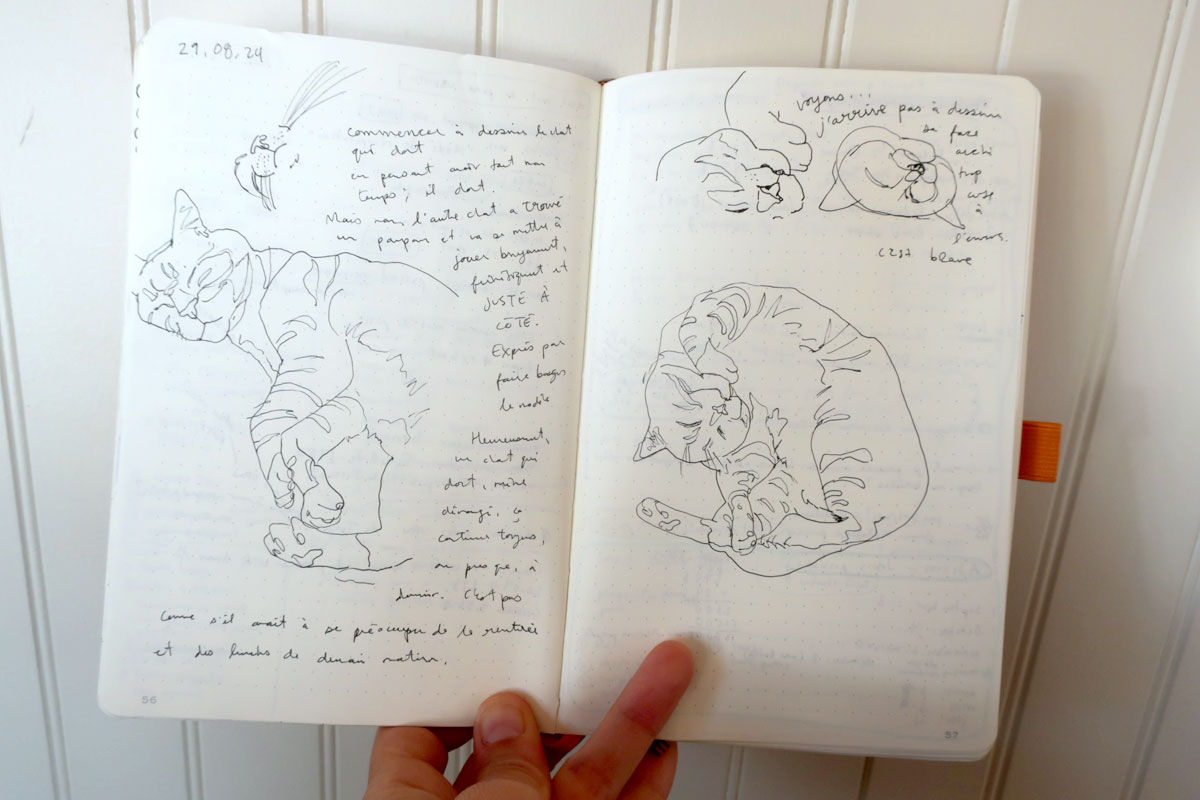 29.08.24
Commencer à dessiner le chat
qui dort
en pensant avoir tout mon
temps; il dort.
Mais non, l'autre chat a trouvé
un et va se mettre à
jouer bruyamment,
frénétiquement et
JUSTE À
CÔTÉ.
Exprès pour
faire bouger
le modèle
Heureusement,
un chat qui
dort, même
dérangé, ça
continue toujours,
ou presque, à
dormir. C'est pas
comme s'il avait à se préoccuper de la rentrée
et des lunchs de demain matin.
56
voyons...
j'arrive pas à dessiner
sa face
archi
trop
cute
à
l'envers.
C'est
57